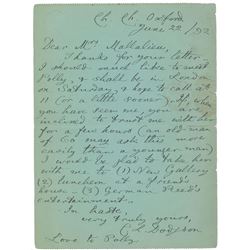 Ch. Ch. Oxford
June 22/92
Dear Mrs. Mallalieu,
Thanks for your letter.
I should much like to meet
Polly, & shall be in London
on Saturday, & hope to call at
11 (or a little sooner). If, when
you have seen me, you are
inclined to trust me with her
for a few hours (an old man
of 60 may ask this
easily than a younger man)
I would be glad to take her
with me to (1) New Gallery
(2) luncheon at a friend's
house — (3) German Reed's
entertainment.
In haste,
very truly yours,
C. L. Dodgson
Love to Polly.